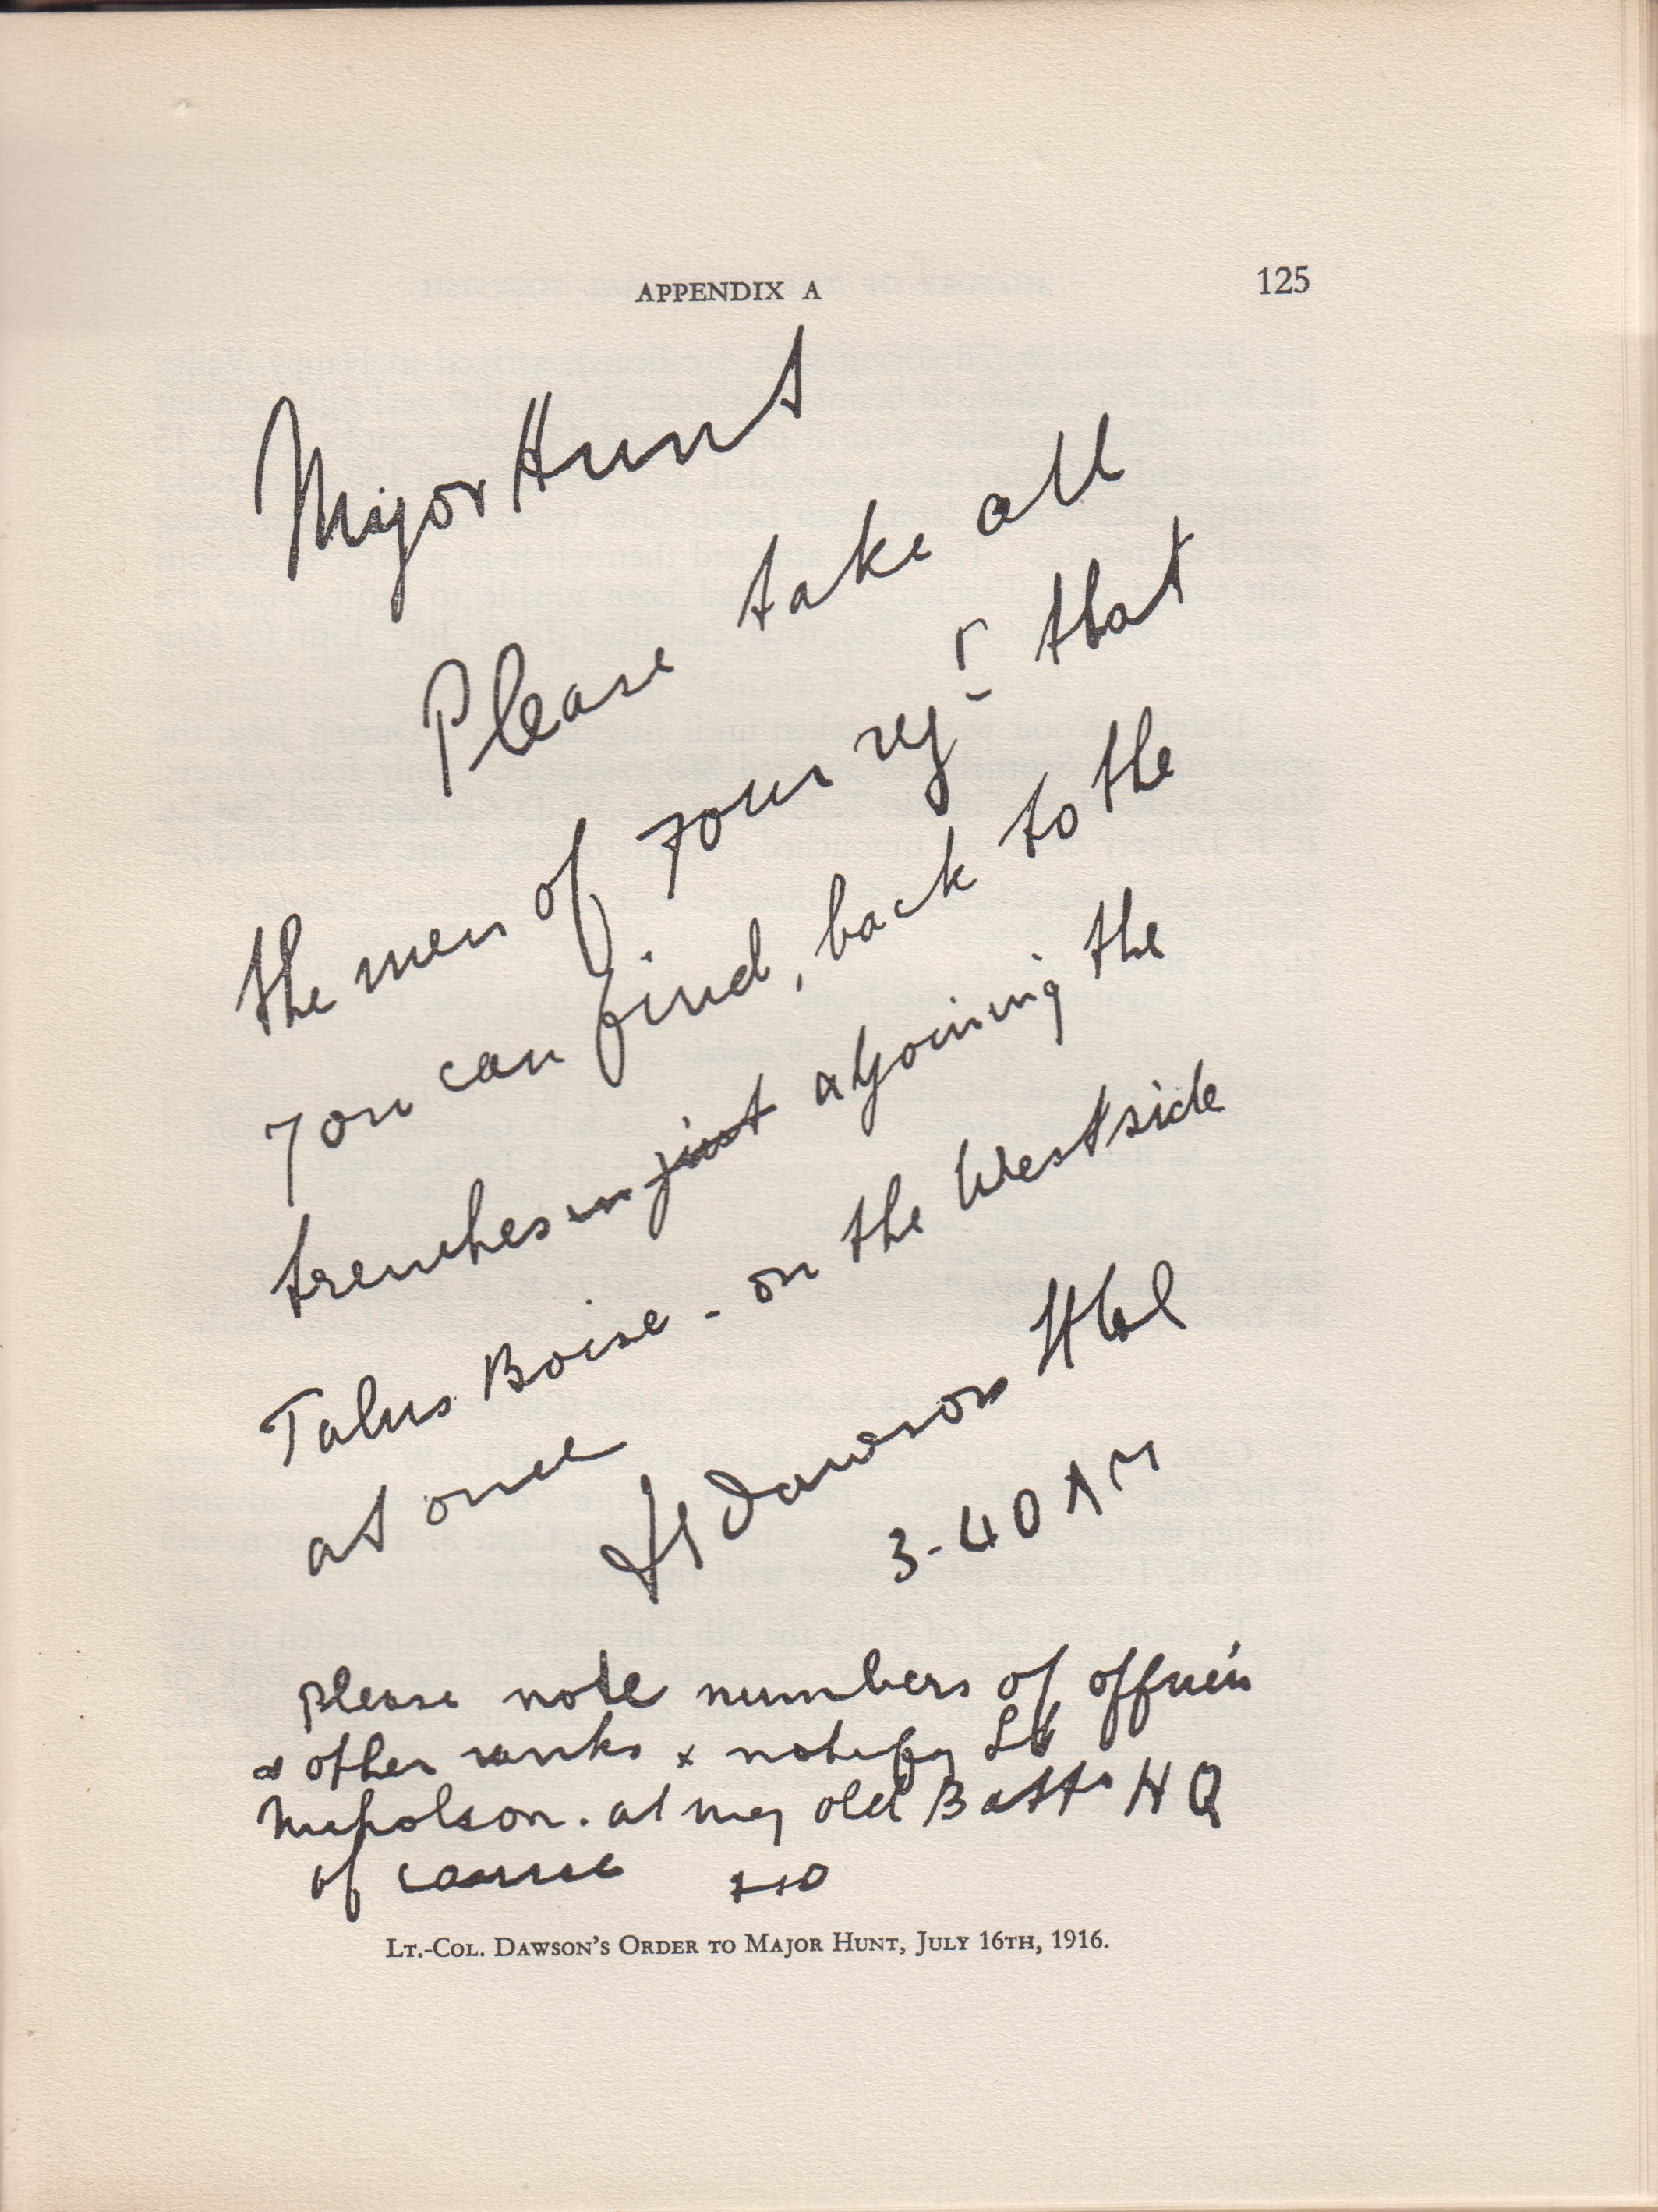 APPENDIX A 125
Major Hunt
Please take all
the men of your regt that
you can find, back to the
trenches in just adjoining the
Talus Boise - on the West side
at once
Dawson Lt Col
3-40 AM
please note numbers of officers
& other ranks & notify Lt
at my old Battn HQ
of course
LT.-COL. DAWSON'S ORDER TO MAJOR HUNT, JULY 16TH, 1916.